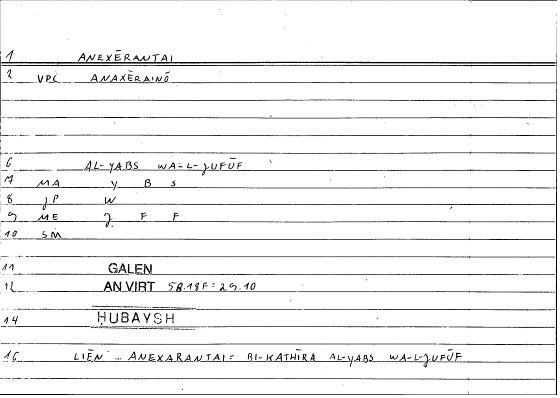 1 ANEXĒRANTAI
2 VPC ANAXĒRAINŌ
6 AL-YABS WA-L-JUFŪF
7 MA Y B S
8 JP W
9 ME J F F
10 SM
11 GALEN
12 AN VIRT 58.18F = 29.10
14 ḤUBAYSH
16 LIĒN ... ANEXARANTAI = BI-KATHĪRA AL-YABS WA-L-JUFŪF